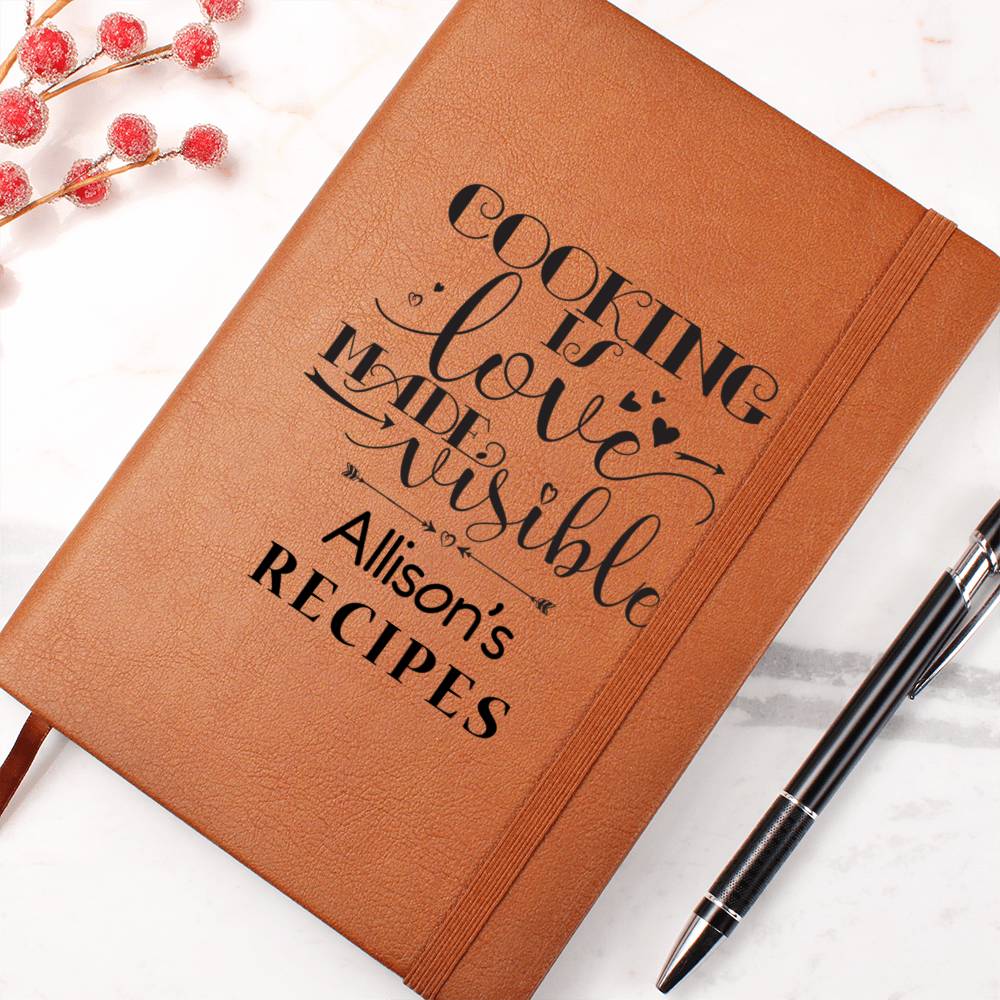 COOKING
IS
love
MADE
visible
Allison's
RECIPES